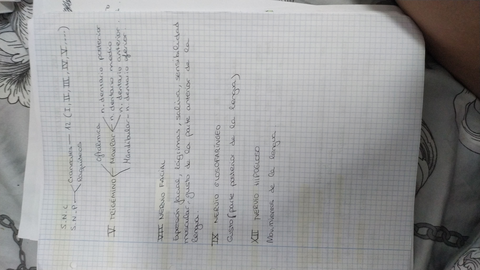 S.N.C
S.N.P Craneales — 12 (I, II, III, IV, V...)
Raquídeos
V TRIGÉMINO
Oftálmica
Maxilar
n. dentario posterior
n. dentario medio
n. dentario anterior
Mandibular - n. dentario inferior
VII NERVIO FACIAL
Expresión facial, lágrimas, saliva, sensibilidad
muscular, gusto de la parte anterior de la
lengua
IX NERVIO GLOSOFARÍNGEO
Gusto (parte posterior de la lengua)
XII NERVIO HIPOGLOSO
de la lengua